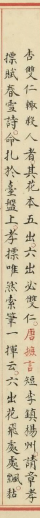 杏雙仁輒殺人者其花本五出六出必雙仁唐摭言短李鎮揚州請章孝
標賦春雪詩命札於臺盤上孝標唯然索筆一揮云六出花飛處處飄黏